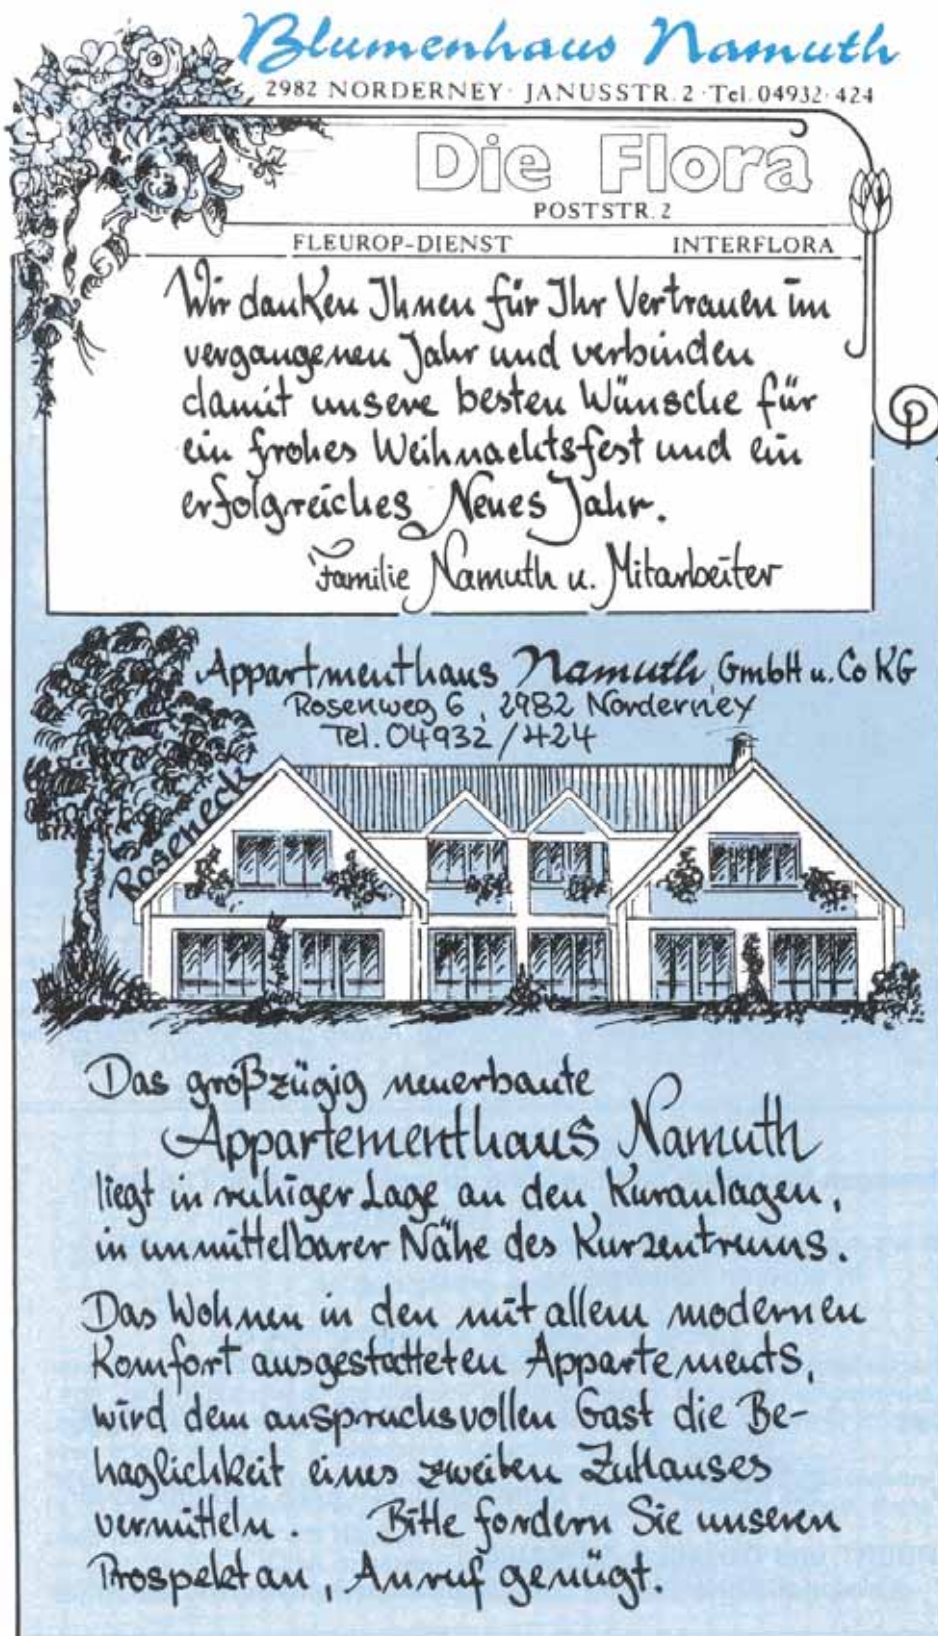 Blumenhaus Namuth
2982 NORDERNEY · JANUSSTR. 2 · Tel. 04932 · 424
Die Flora
POSTSTR. 2
FLEUROP-DIENST INTERFLORA
Wir danken Ihnen für Ihr Vertrauen im
vergangenen Jahr und verbinden
damit unsere besten Wünsche für
ein frohes Weihnachtsfest und ein
erfolgreiches Neues Jahr.
Familie Namuth u. Mitarbeiter
Appartmenthaus Namuth GmbH u. Co KG
Rosenweg 6, 2982 Norderney
Tel. 04932 / 424
Roseneck
Das großzügig neuerbaute
Appartementhaus Namuth
liegt in ruhiger Lage an den Kuranlagen,
in unmittelbarer Nähe des Kurzentrums.
Das Wohnen in den mit allem modernen
Komfort ausgestatteten Appartements,
wird dem anspruchsvollen Gast die Be-
haglichkeit eines zweiten Zuhauses
vermitteln. Bitte fordern Sie unseren
Prospekt an, Anruf genügt.